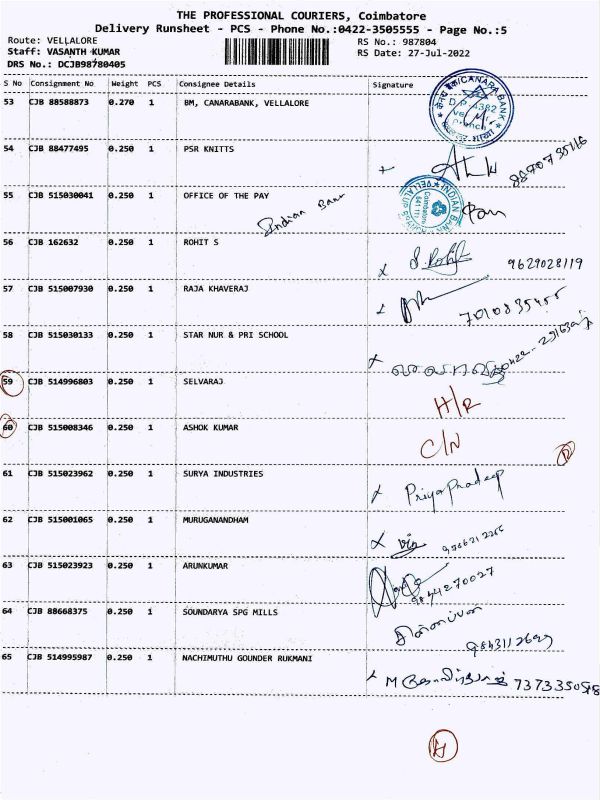 THE PROFESSIONAL COURIERS, Coimbatore
Delivery Runsheet - PCS - Phone No.:0422-3505555 - Page No.:5
Route: VELLALORE
RS No.: 987804
Staff: VASANTH KUMAR
RS Date: 27-Jul-2022
DRS No.: DCJB98780405
S No Consignment No Weight PCS Consignee Details Signature
53 CJB 88588873 0.270 1 BM, CANARABANK, VELLALORE
CANARA BANK
54 CJB 88477495 0.250 1 PSR KNITTS
8870735116
55 CJB 515030041 0.250 1 OFFICE OF THE PAY
Indian Bank
INDIAN BANK
Coimbatore
641111
56 CJB 162632 0.250 1 ROHIT S
S. Rohit 9629028119
57 CJB 515007930 0.250 1 RAJA KHAVERAJ
58 CJB 515030133 0.250 1 STAR NUR & PRI SCHOOL
59 CJB 514996803 0.250 1 SELVARAJ
H/R
60 CJB 515008346 0.250 1 ASHOK KUMAR
C/N
61 CJB 515023962 0.250 1 SURYA INDUSTRIES
Priya Pradeep
62 CJB 515001065 0.250 1 MURUGANANDHAM
63 CJB 515023923 0.250 1 ARUNKUMAR
64 CJB 88668375 0.250 1 SOUNDARYA SPG MILLS
65 CJB 514995987 0.250 1 NACHIMUTHU GOUNDER RUKMANI